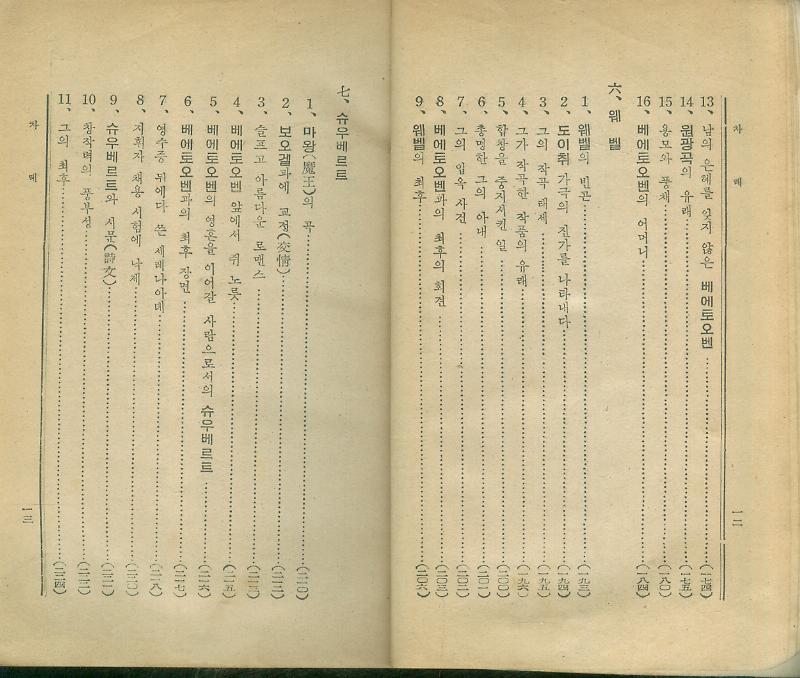 차 례
一二
13、 남의 은혜를 잊지 않은 베에토오벤 (一七四)
14、 월광곡의 유래 (一七五)
15、 용모와 풍채 (一八〇)
16、 베에토오벤의 어머니 (一八四)
六、 웨 벨
1、 웨벨의 빈곤 (一九三)
2、 도이취 가극의 진가를 나타내다 (一九四)
3、 그의 작곡 태세 (一九五)
4、 그가 작곡한 작품의 유래 (一九六)
5、 합창을 중지시킨 일 (二〇〇)
6、 총명한 그의 아내 (二〇一)
7、 그의 입옥 사건 (二〇二)
8、 베에토오벤과의 최후의 회견 (二〇三)
9、 웨벨의 최후 (二〇六)
七、 슈우베르트
1、 마왕(魔王)의 곡 (二一〇)
2、 보오겔과에 교정(交情) (二一二)
3、 슬프고 아름다운 로맨스 (二一三)
4、 베에토오벤 앞에서 쥐 노릇 (二一五)
5、 베에토오벤의 영혼을 이어갈 사람으로서의 슈우베르트 (二一六)
6、 베에토오벤과의 최후 장면 (二一七)
7、 영수증 뒤에다 쓴 세레나아데 (二一八)
8、 지휘자 채용 시험에 낙제 (二二〇)
9、 슈우베르트와 시문(詩文)
10、 창작력의 풍부성
11、 그의 최후 (二二四)
차 례
一三